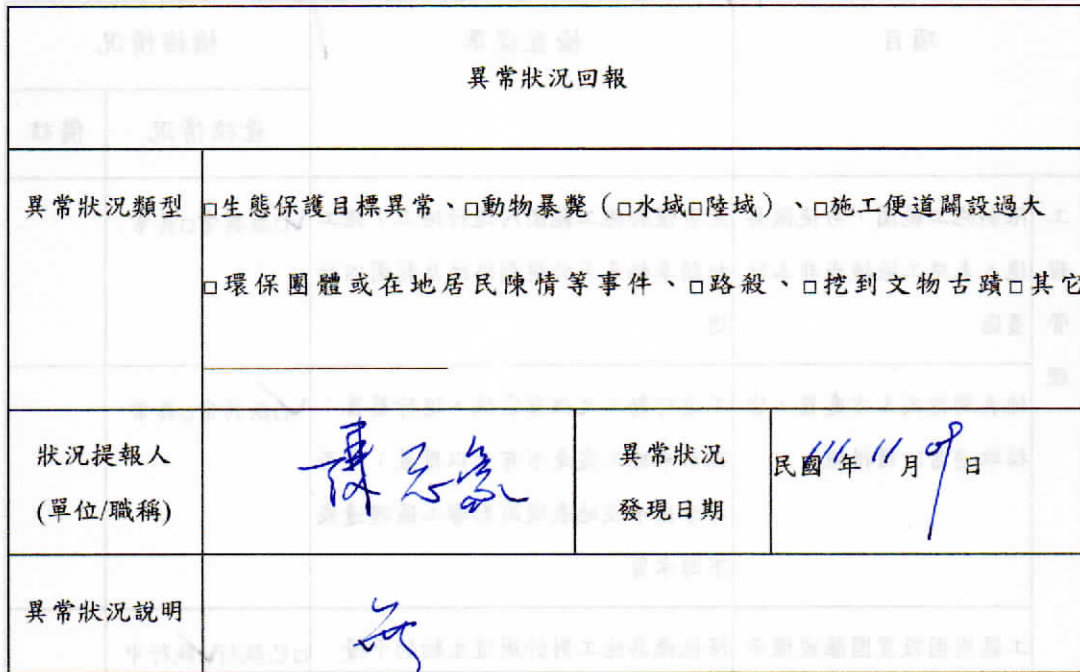 異常狀況回報
異常狀況類型
□生態保護目標異常、□動物暴斃(□水域□陸域)、□施工便道闢設過大
□環保團體或在地居民陳情等事件、□路殺、□挖到文物古蹟□其它
狀況提報人
(單位/職稱)
異常狀況
發現日期
民國111年11月09日
異常狀況說明
無